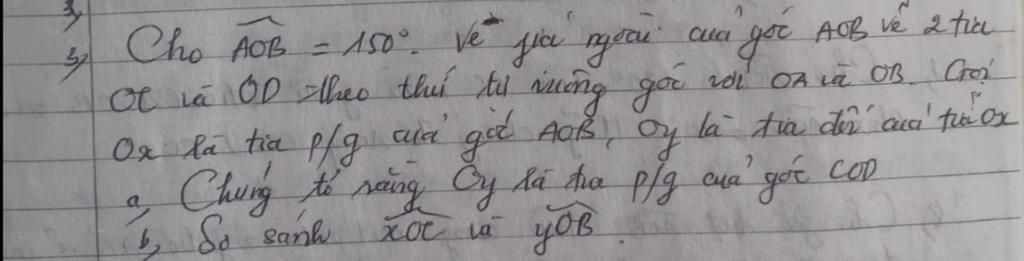 3,
3, Cho AOB = 150°. Vẽ phía ngoài của góc AOB vẽ 2 tia
OC và OD theo thứ tự vuông góc với OA và OB. Gọi
Ox là tia p/g của góc AOB, Oy là tia đối của tia Ox
a, Chứng tỏ rằng Oy là tia p/g của góc COD
b, So sánh xOC và yOB.